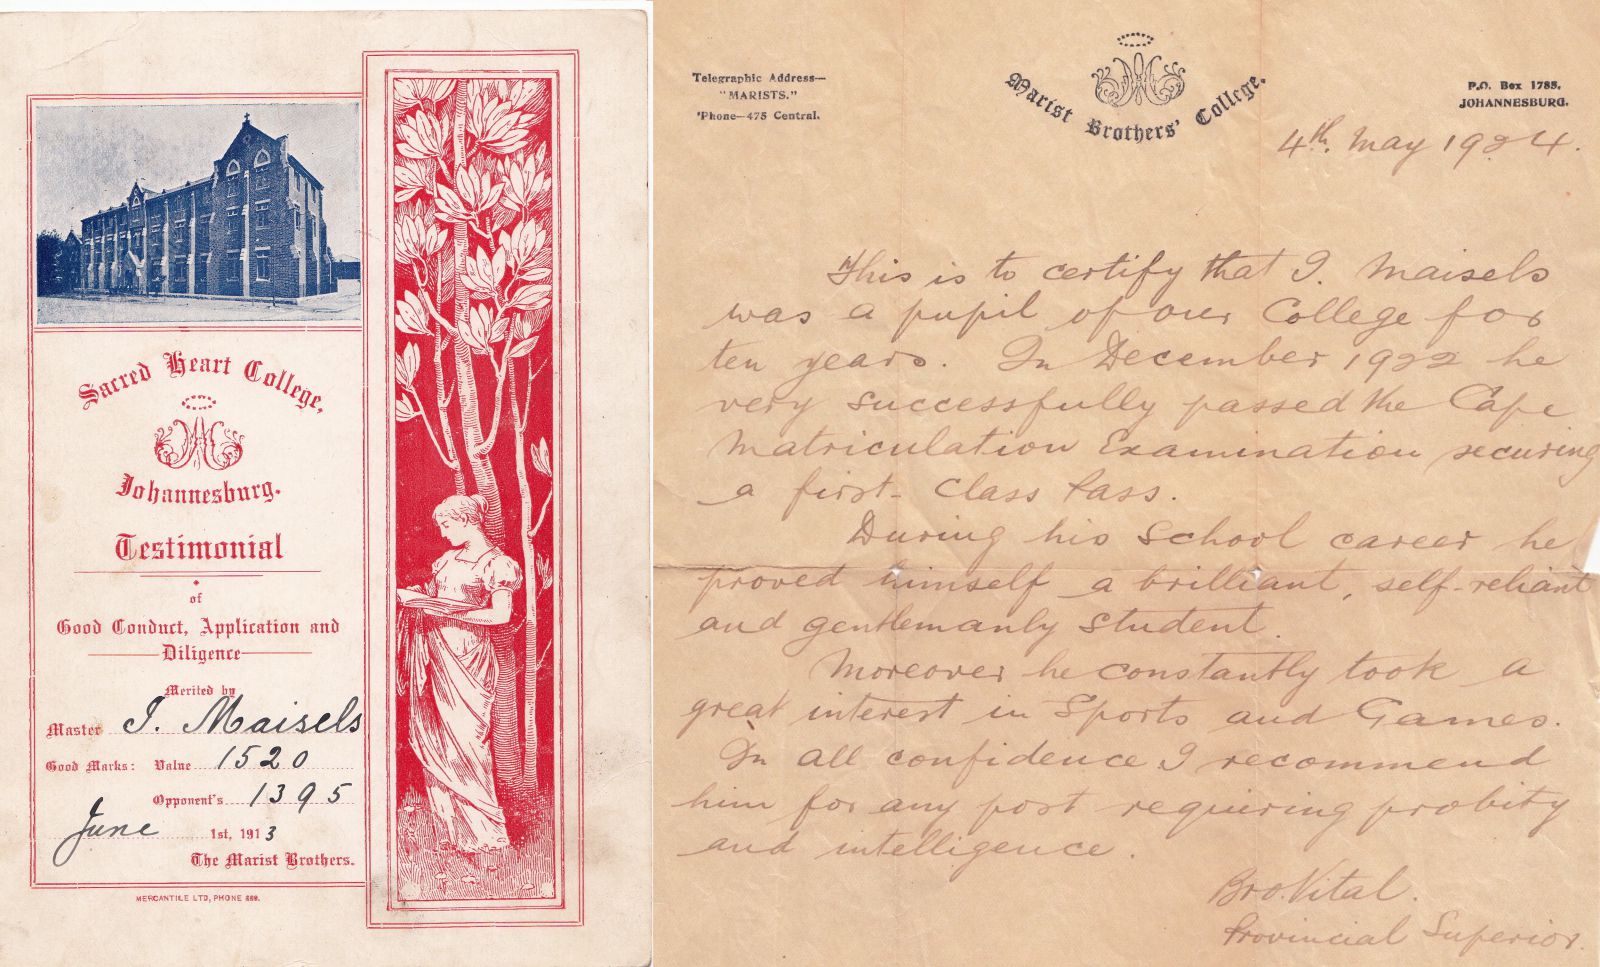 Sacred Heart College,
Johannesburg.
Testimonial
of
Good Conduct, Application and
Diligence
Merited by
Master I. Maisels
Good Marks: Value 1520
Opponent's 1395
June 1st, 1913
The Marist Brothers.
MERCANTILE LTD, PHONE 889.
Telegraphic Address—
"MARISTS."
'Phone—475 Central.
Marist Brothers' College.
P.O. Box 1785.
JOHANNESBURG.
4th. May 1924.
This is to certify that I. Maisels
was a pupil of our College for
ten years. In December 1922 he
very successfully passed the Cape
Matriculation Examination securing
a first-class Pass.
During his school career he
proved himself a brilliant, self-reliant
and gentlemanly student.
Moreover he constantly took a
great interest in Sports and Games.
In all confidence I recommend
him for any post requiring probity
and intelligence.
Bro. Vital.
Provincial Superior.